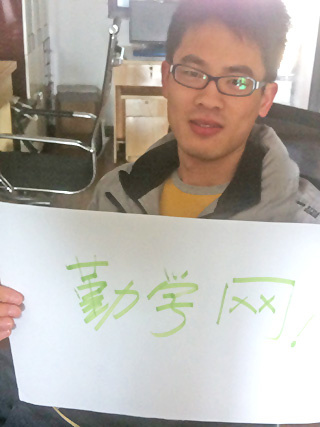 勤学网!